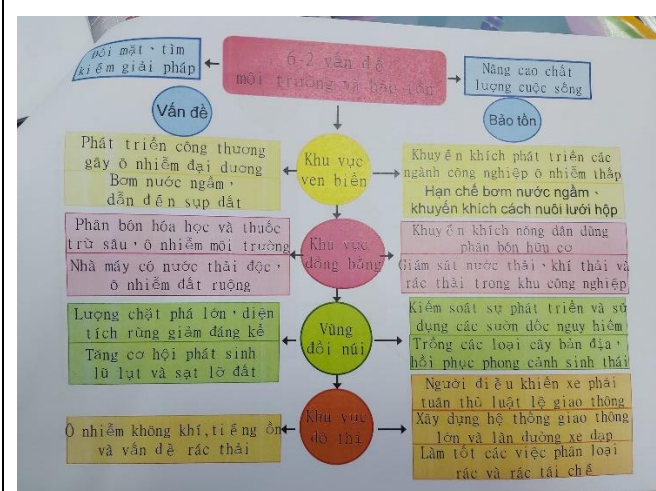 Đối mặt、tìm
kiếm giải pháp
6-2 vấn đề
môi trường và bảo tồn
Nâng cao chất
lượng cuộc sống
Vấn đề
Bảo tồn
Phát triển công thương
gây ô nhiễm đại dương
Bơm nước ngầm,
dẫn đến sụp đất
Khu vực
ven biển
Khuyến khích phát triển các
ngành công nghiệp ô nhiễm thấp
Hạn chế bơm nước ngầm、
khuyến khích cách nuôi lưới hộp
Phân bón hóa học và thuốc
trừ sâu,ô nhiễm môi trường
Nhà máy có nước thải độc,
ô nhiễm đất ruộng
Khu vực
đồng bằng
Khuyến khích nông dân dùng
phân bón hữu cơ
Giám sát nước thải、khí thải và
rác thải trong khu công nghiệp
Lượng chặt phá lớn,diện
tích rừng giảm đáng kể
Tăng cơ hội phát sinh
lũ lụt và sạt lở đất
Vùng
đồi núi
Kiểm soát sự phát triển và sử
dụng các sườn dốc nguy hiểm
Trồng các loại cây bản địa,
hồi phục phong cảnh sinh thái
Ô nhiễm không khí,tiếng ồn
và vấn đề rác thải
Khu vực
đô thị
Người điều khiển xe phải
tuân thủ luật lệ giao thông
Xây dựng hệ thống giao thông
lớn và làn đường xe đạp
Làm tốt các việc phân loại
rác và rác tái chế